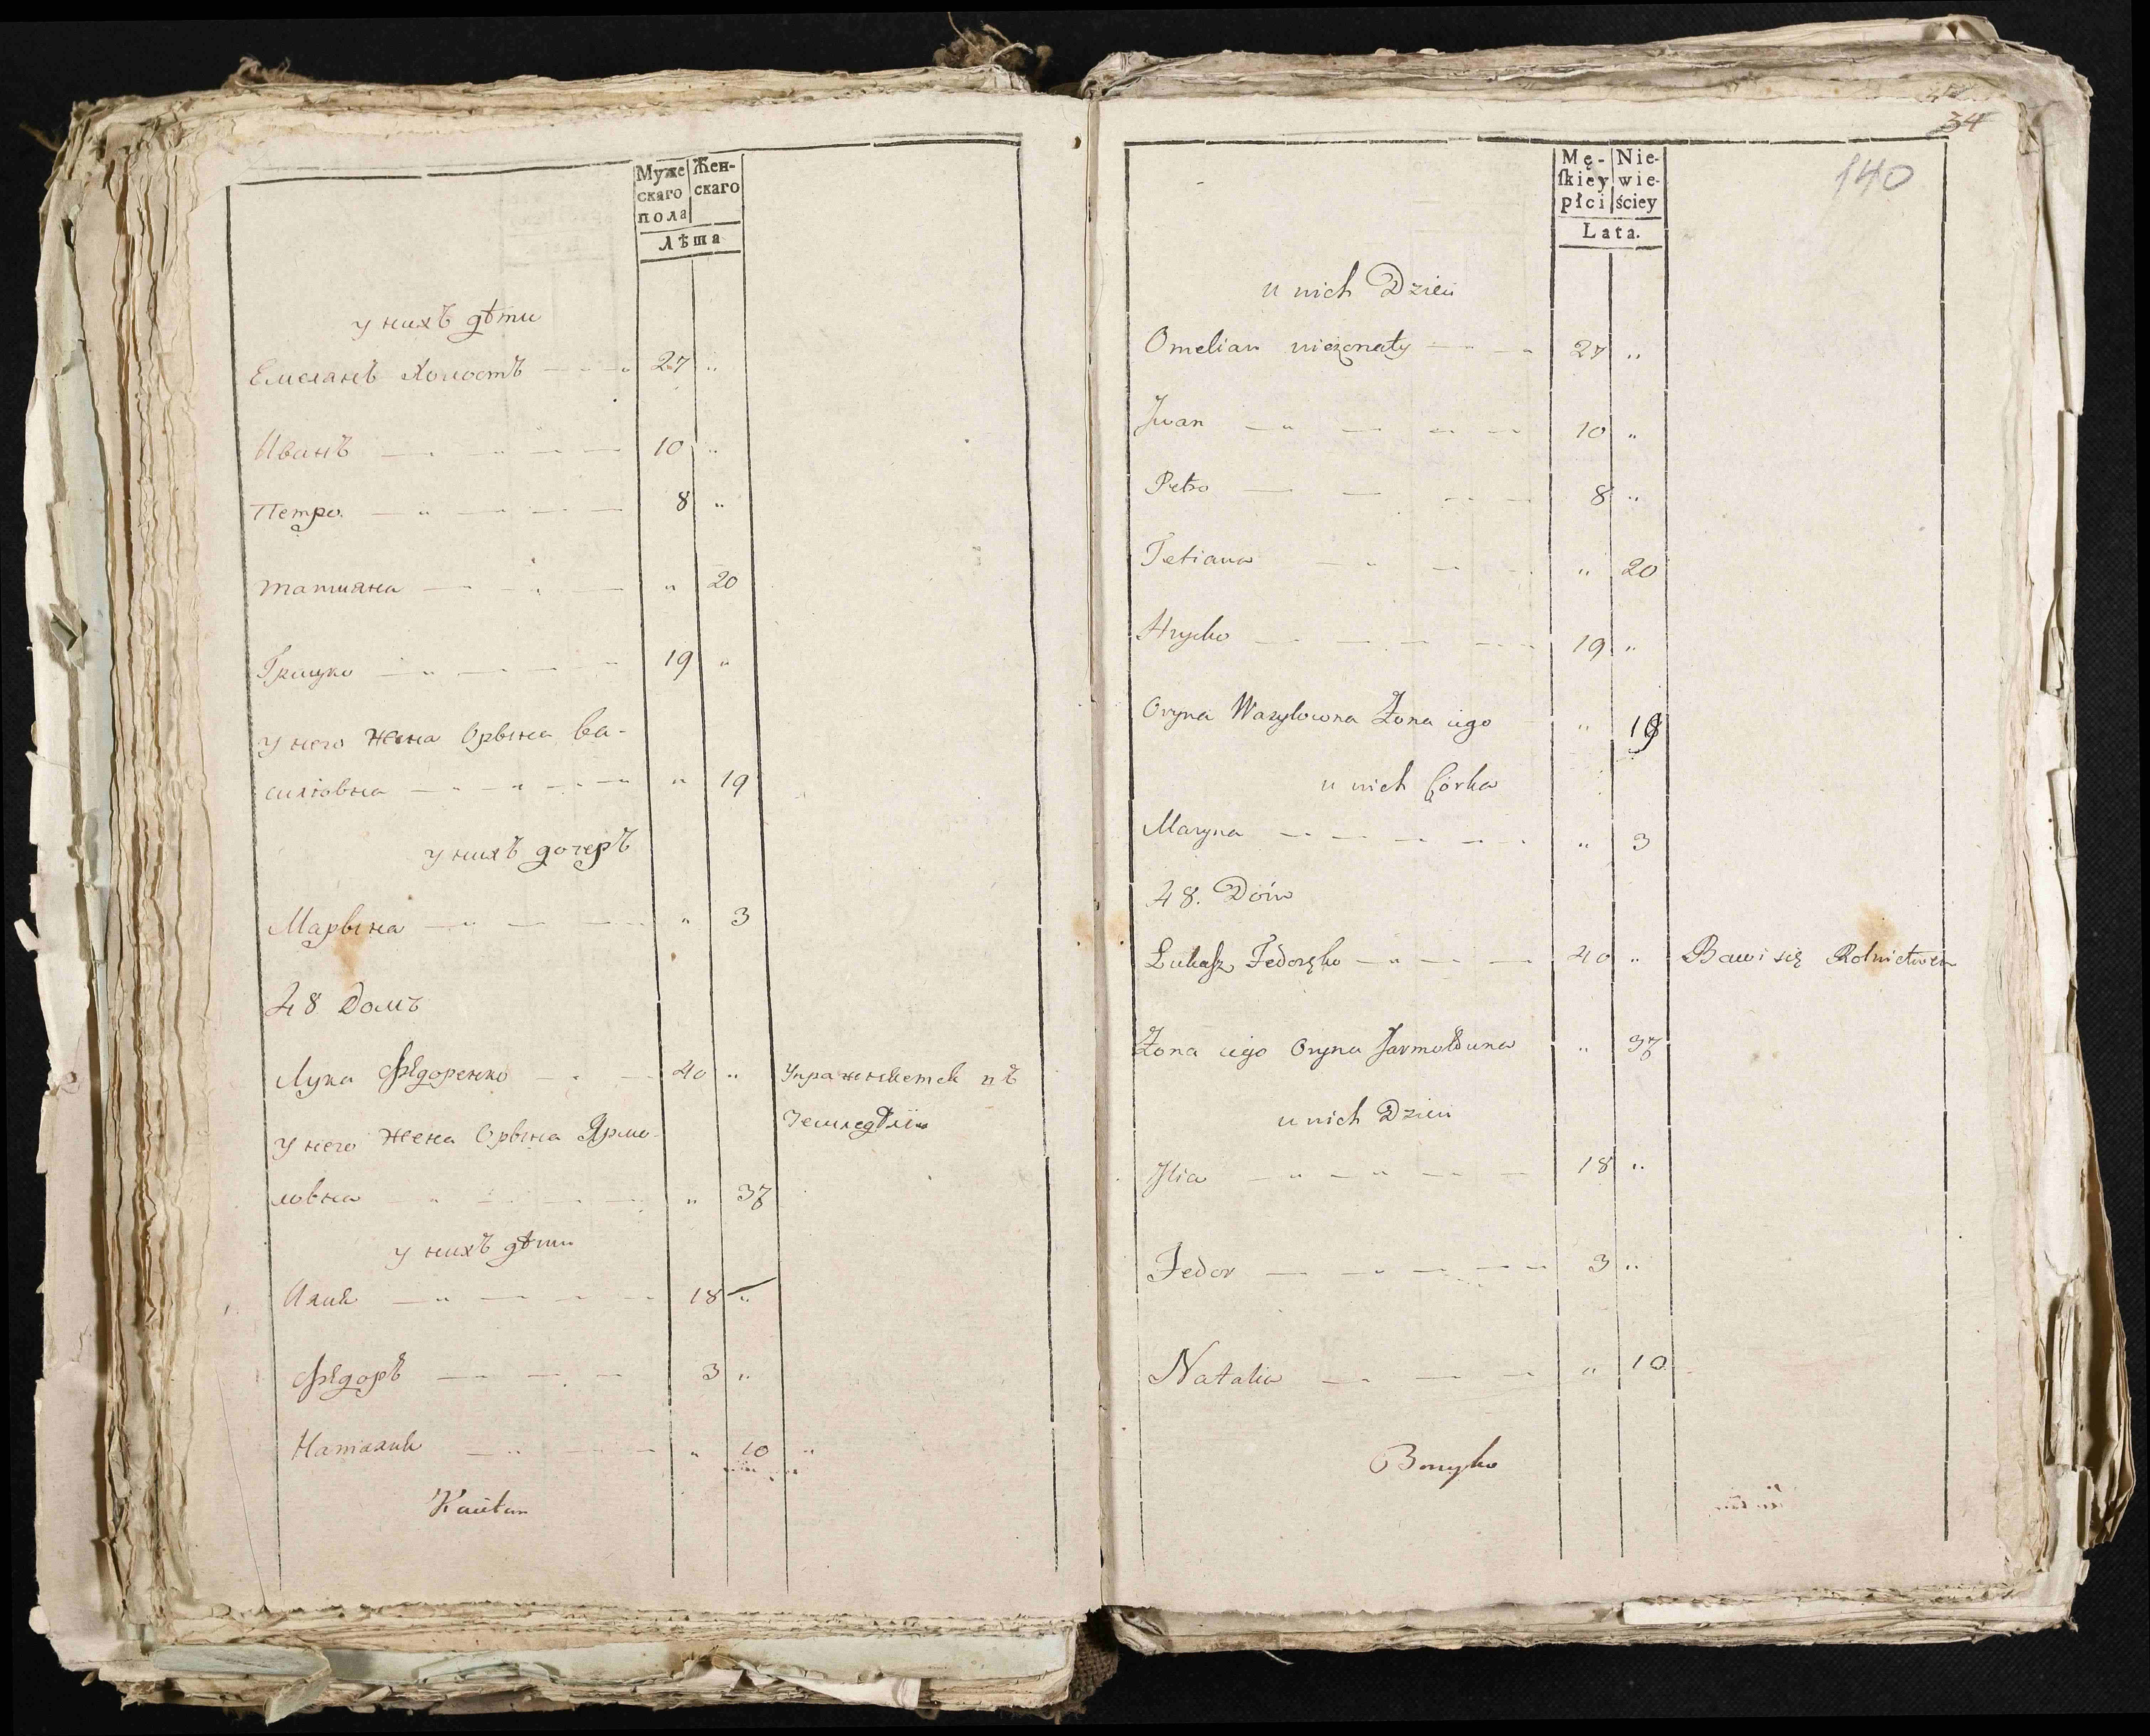 Муже
скаго
пола
Жен-
скаго
Лѣта
у нихъ дѣти
Емелянъ Холостъ 27 "
Иванъ 10 "
Петро 8 "
Татияна " 20
Грицко 19 "
у него Жена Орына Ва-
силіовна " 19
у нихъ дочеръ
Марына " 3
48 Домъ
Лука Фѣдоренко 40 " Упражняется въ
Земледѣліи
у него Жена Орына Ярмо-
ловна " 37
у нихъ дѣти
Илия 18 "
Фѣдоръ 3 "
Наталия " 10
34
140
Mę-
ſkiey
płci
Nie-
wie-
ściey
Lata.
u nich Dzieci
Omelian nieżonaty 27 "
Jwan 10 "
Petro 8 "
Tetiana " 20
Hrycko 19 "
Oryna Wasylowna Żona iego " 19
u nich Córka
Maryna " 3
48. Dóm
Łukasz Fedoręko 40 " Bawi się Rolnictwem
Żona iego Oryna Jarmołowna " 37
u nich Dzieci
Jlia 18 "
Fedor 3 "
Natalia " 10